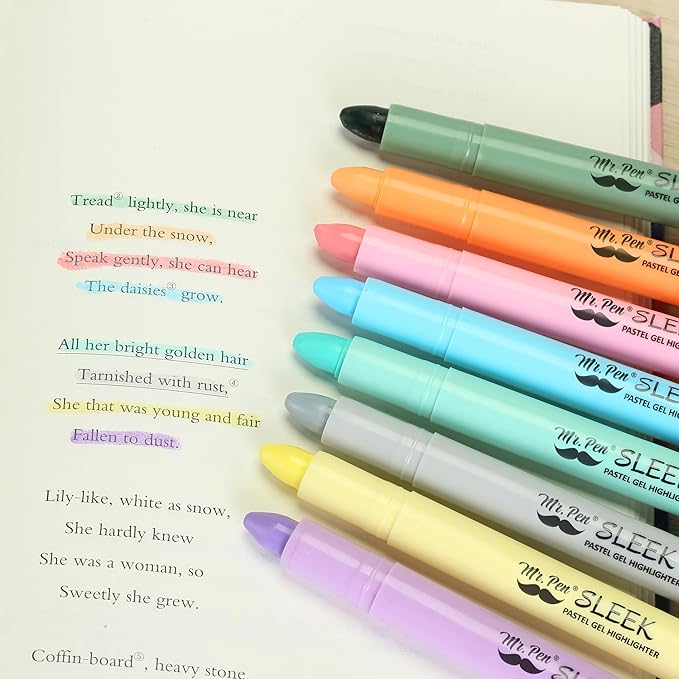 Tread② lightly, she is near
Under the snow,
Speak gently, she can hear
The daisies③ grow.
All her bright golden hair
Tarnished with rust,④
She that was young and fair
Fallen to dust.
Lily-like, white as snow,
She hardly knew
She was a woman, so
Sweetly she grew.
Coffin-board⑤, heavy stone
Mr. Pen® SLEEK
PASTEL GEL
Mr. Pen® SLE
PASTEL GEL
Mr. Pen® SLEE
PASTEL GEL HIGH
Mr. Pen® SLEE
PASTEL GEL HIGHL
Mr. Pen® SLEEK
PASTEL GEL HIGHLIGHTER
Mr. Pen® SLEEK
PASTEL GEL HIGHLIGHTER
Mr. Pen® SLEEK
PASTEL GEL HIGHLIGHTER
Mr. Pen® SLEEK